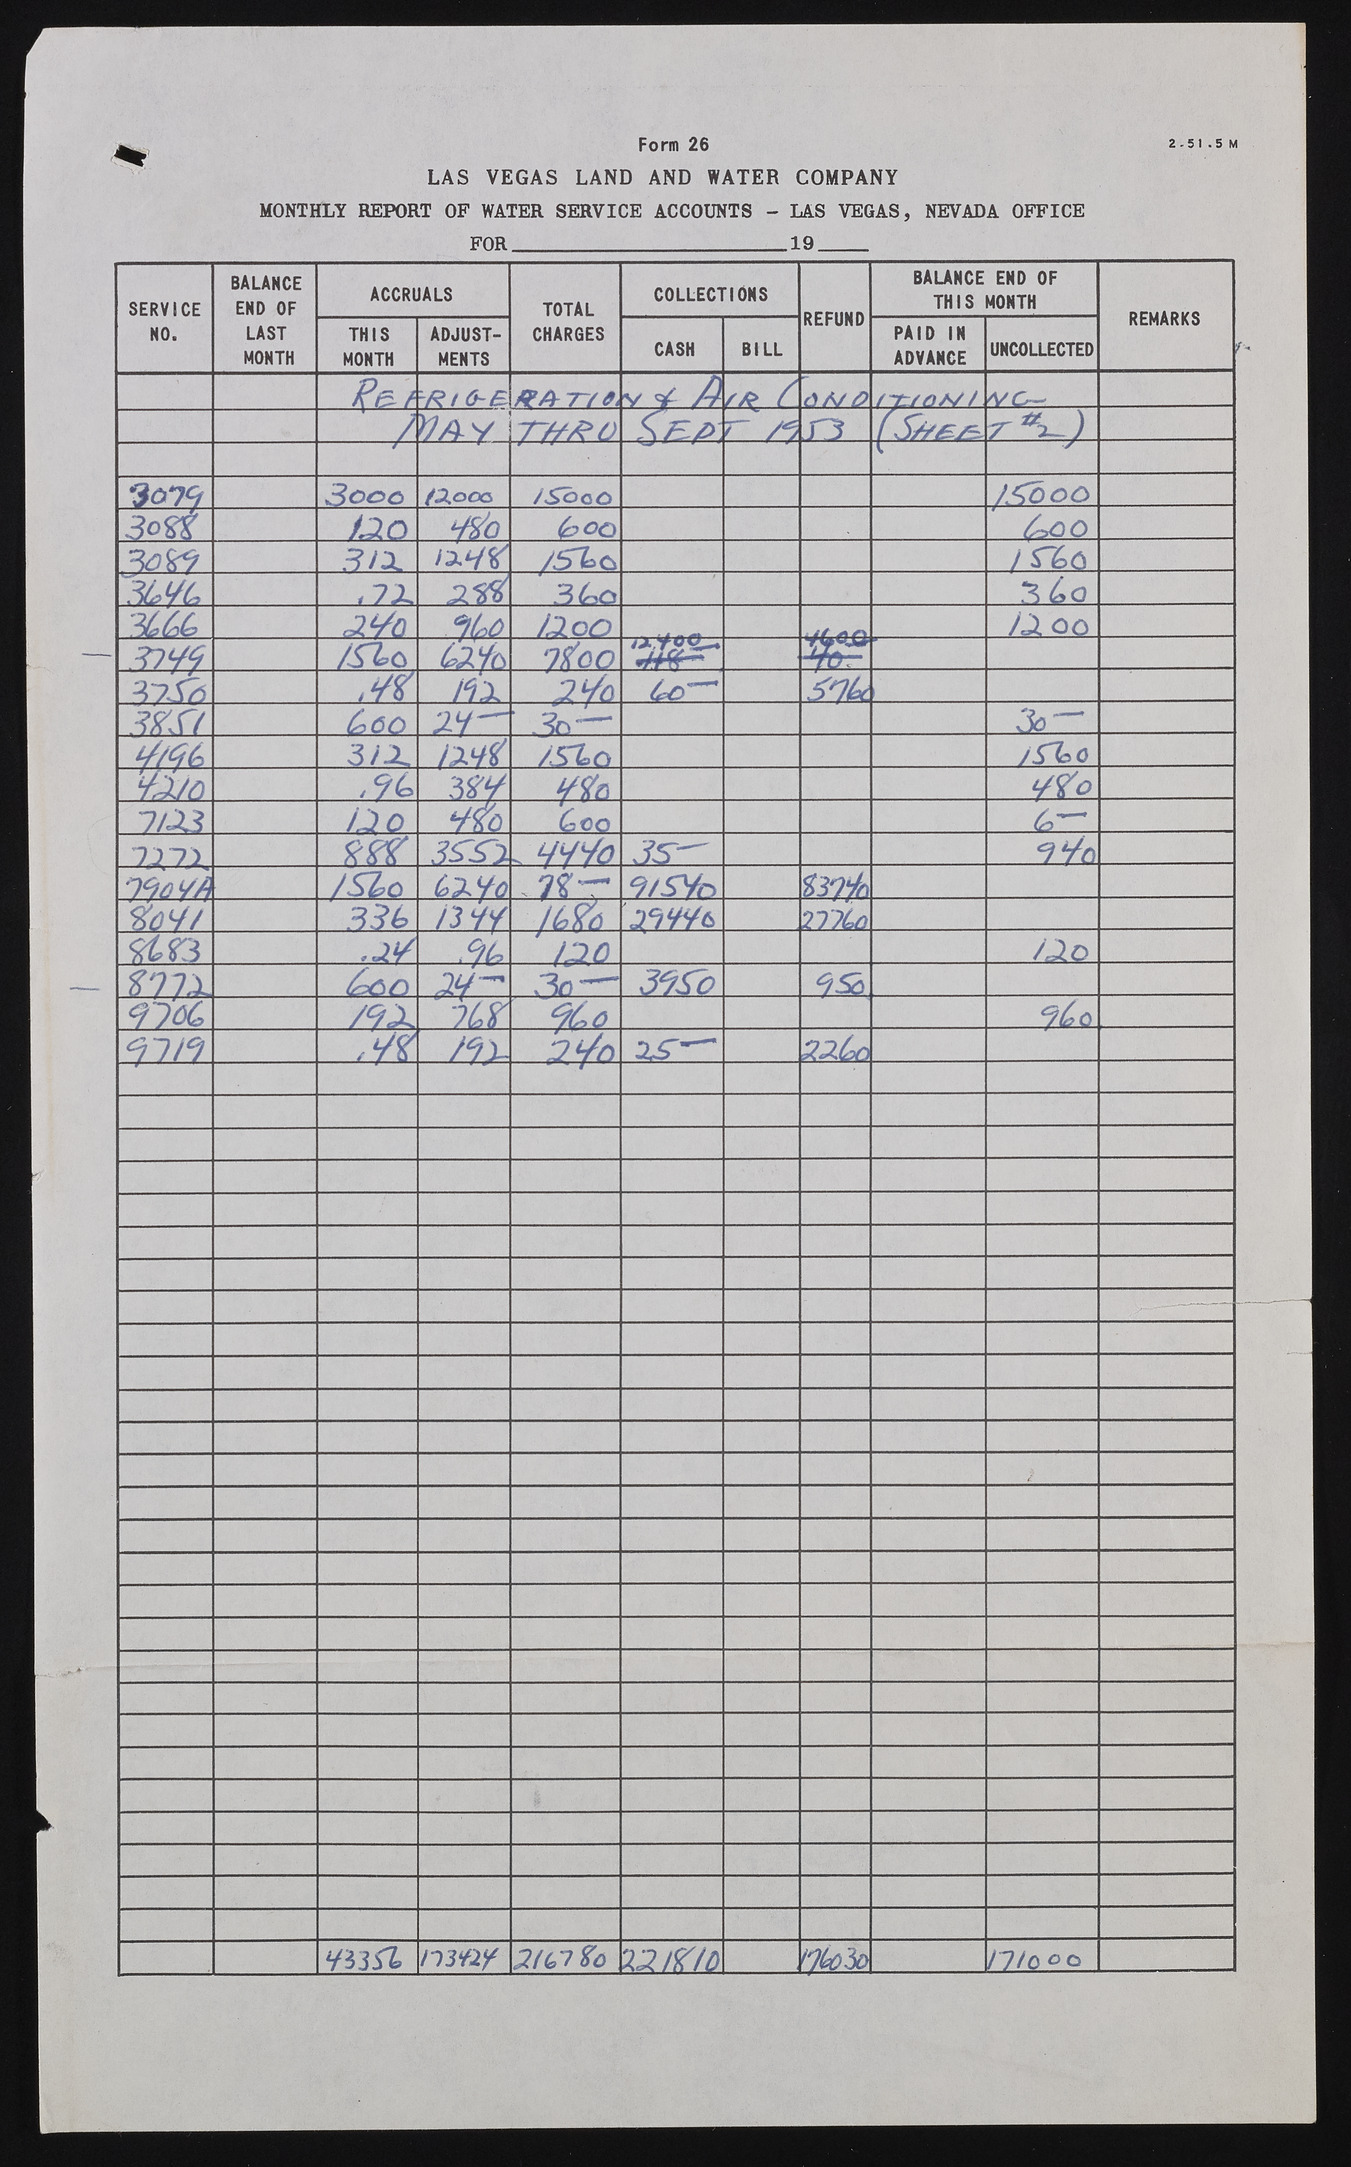 Form 26
2-51.5M
LAS VEGAS LAND AND WATER COMPANY
MONTHLY REPORT OF WATER SERVICE ACCOUNTS - LAS VEGAS, NEVADA OFFICE
FOR 19
SERVICE NO. BALANCE END OF LAST MONTH ACCRUALS THIS MONTH ADJUST-MENTS TOTAL CHARGES COLLECTIONS CASH BILL REFUND BALANCE END OF THIS MONTH PAID IN ADVANCE UNCOLLECTED REMARKS
REFRIGERATION & AIR CONDITIONING
MAY THRU SEPT 1953 (SHEET #2)
3079 3000 12000 15000 15000
3088 120 480 600 600
3089 312 1248 1560 1560
3646 .72 288 360 360
3666 240 960 1200 1200
12400 4600
3749 1560 6240 7800 118— 40—
3750 .48 192 240 60— 5760
3851 600 24— 30— 30—
4196 312 1248 1560 1560
4210 .96 384 480 480
7123 120 480 600 6—
7272 888 3552 4440 35— 940
7904A 1560 6240 78— 91540 83740
8041 336 1344 1680 29440 27760
8683 .24 .96 120 120
8772 600 24— 30— 3950 950
9706 192 768 960 960
9719 .48 192 240 25— 2260
43356 173424 216780 221810 176030 171000